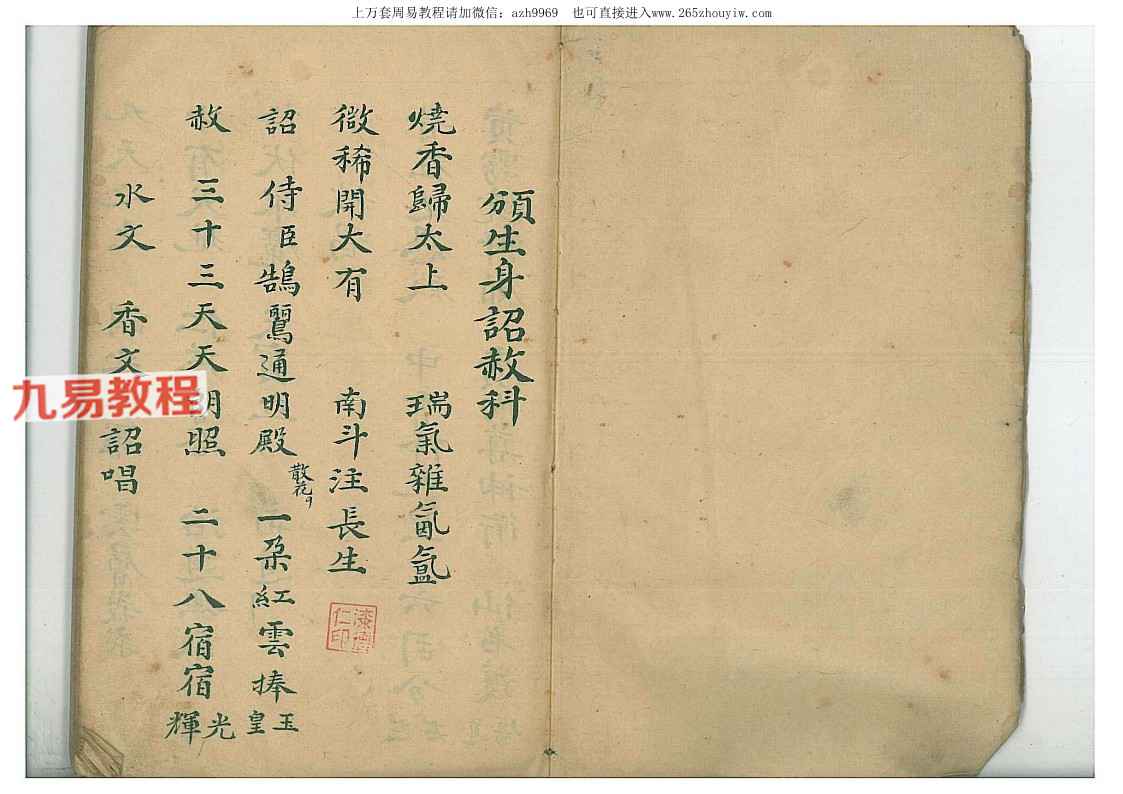 上万套周易教程请加微信：azh9969 也可直接进入www.265zhouyiw.com
頒生身詔赦科
燒香歸太上 瑞氣雜氤氳
微稀開大有 南斗注長生
詔 侍臣鵠鷖通明殿 散花 一朶紅雲捧玉皇
赦 三十三天天朗照 二十八宿宿光輝
水文 香文 詔唱
九易教程
漆德仁印